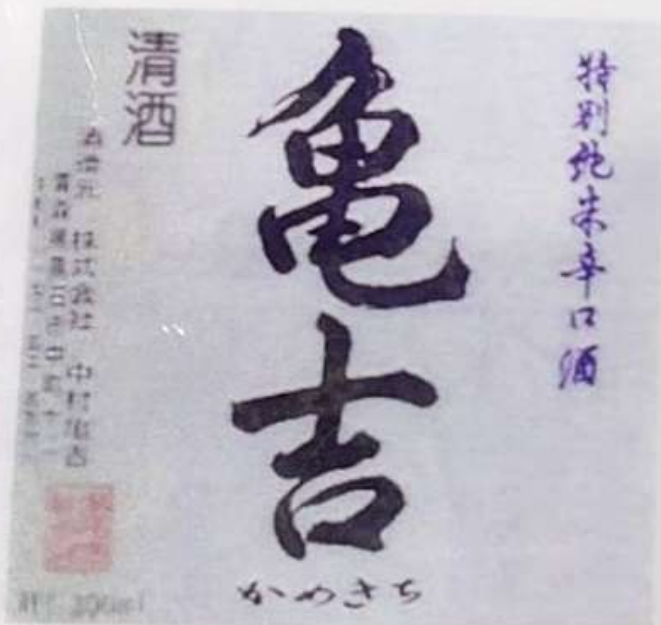 特別純米辛口酒
亀吉
かめきち
清酒
酒造元 株式会社 中村亀吉
青森県黒石市中町十二